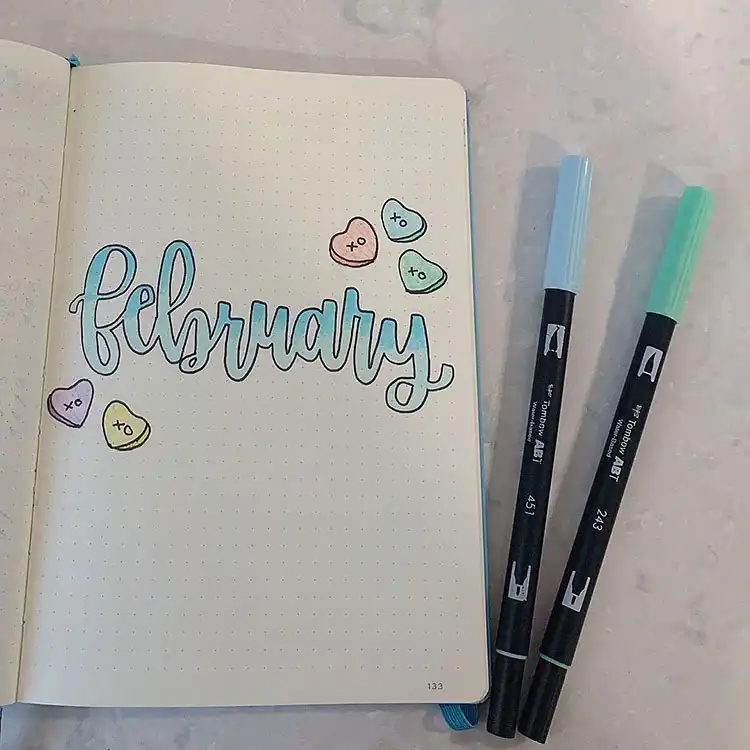 XO
XO
XO
february
XO
XO
Tombow ABT
Water-based
451
Tombow ABT
Water-based
243
133